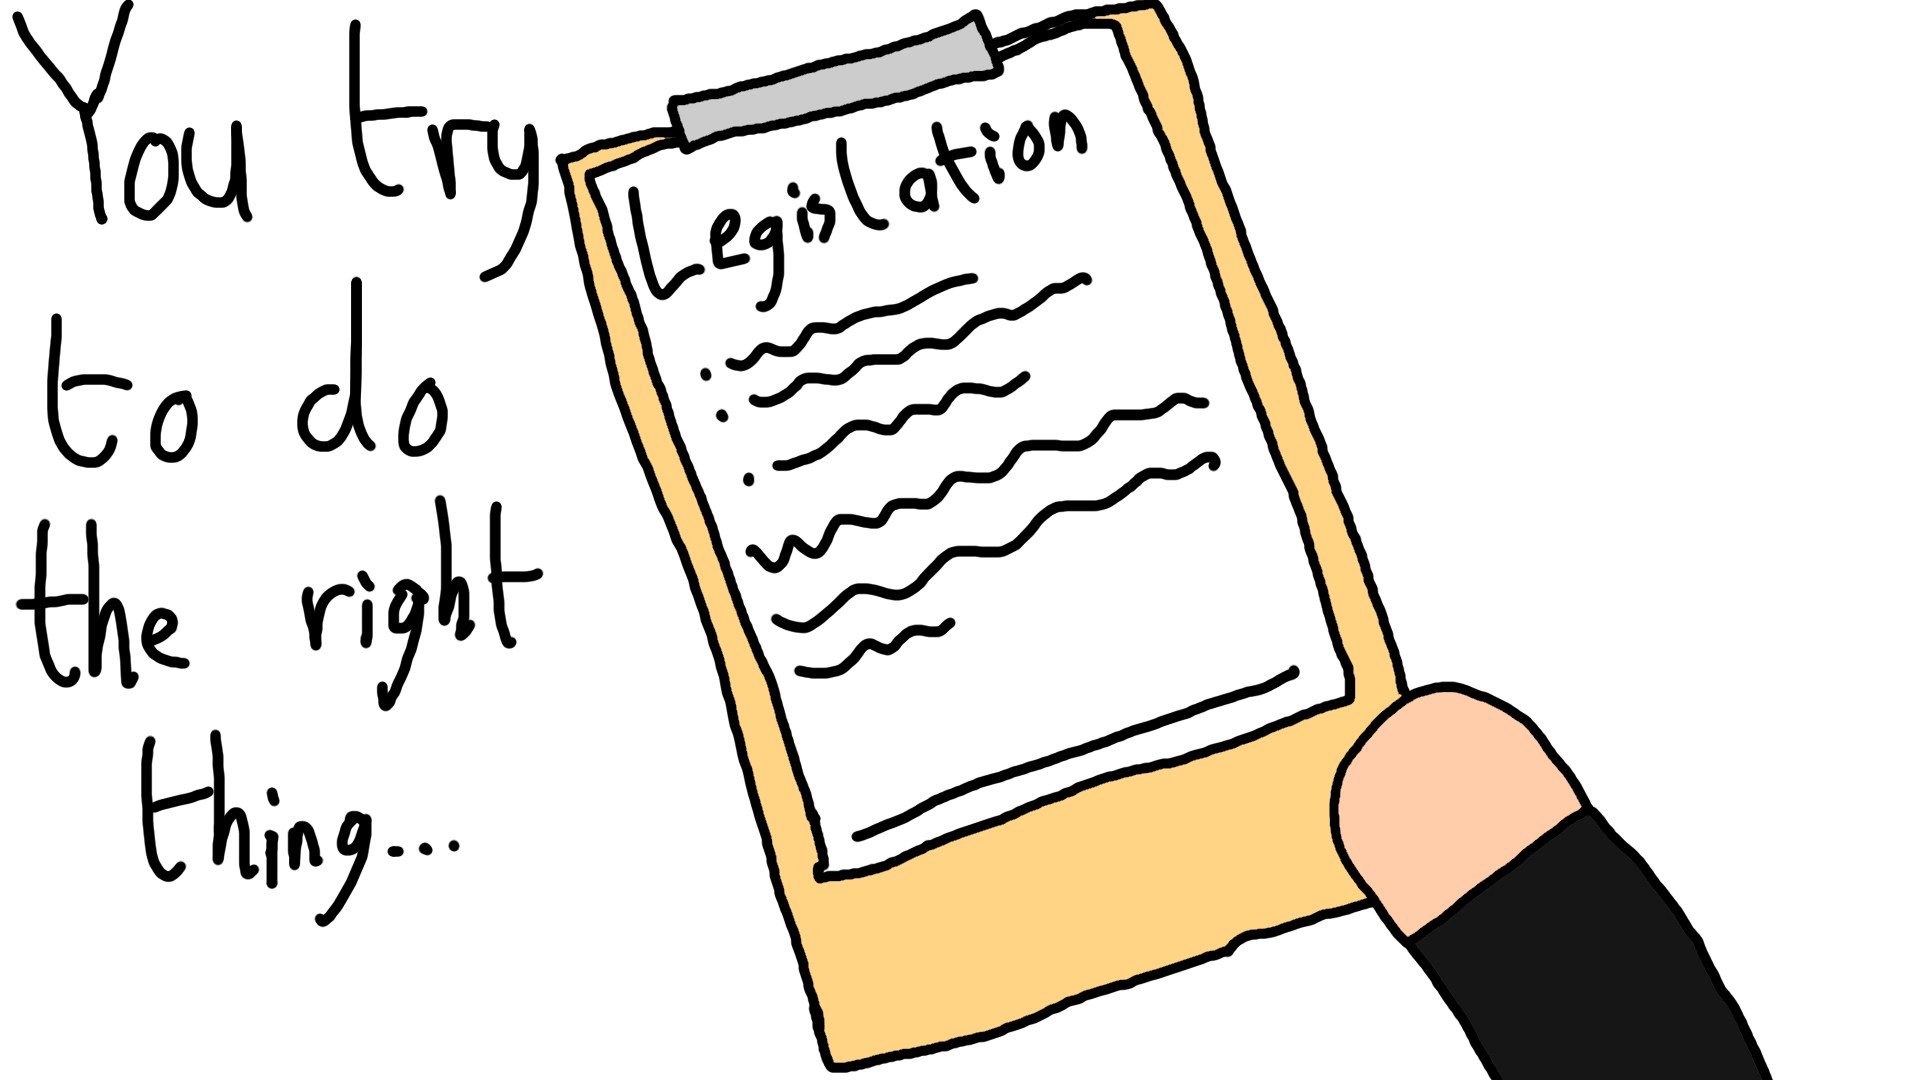 You try
to do
the right
thing...
Legislation